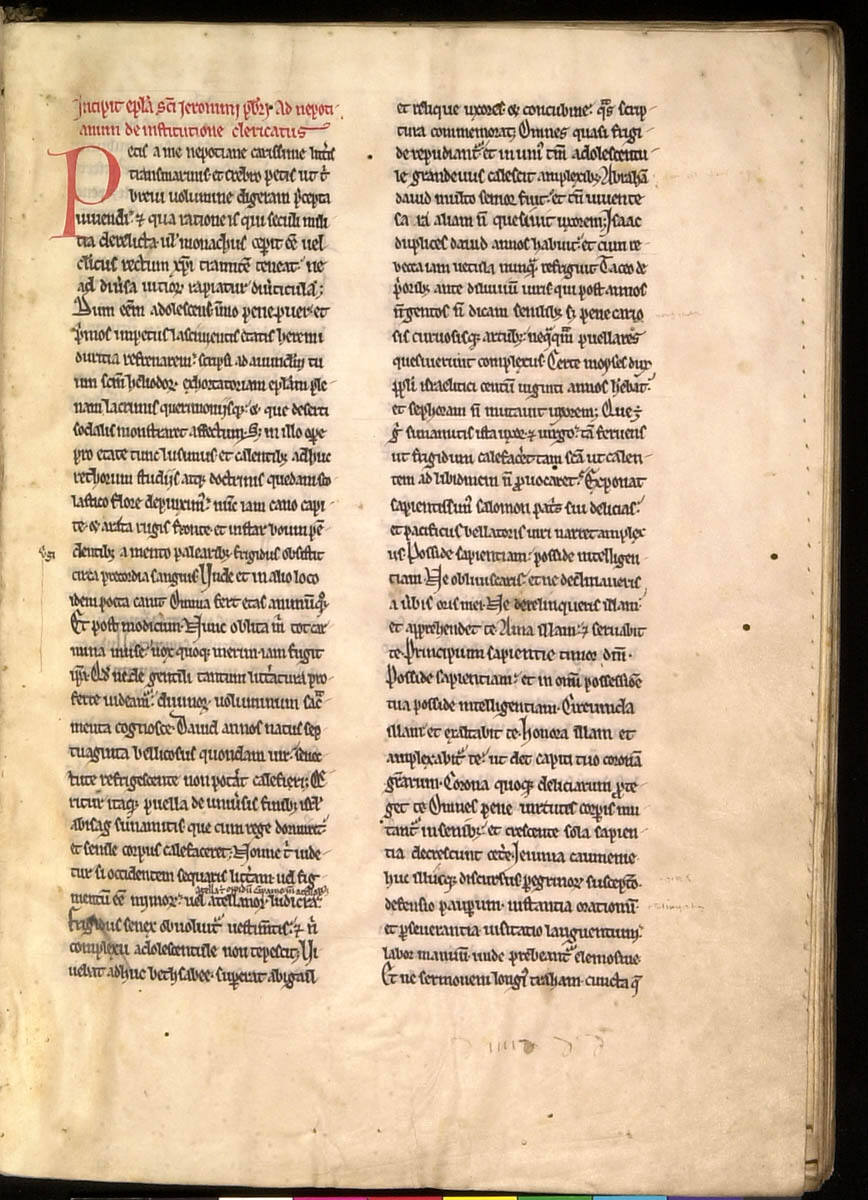 Incipit epl̄a sc̄i Ieronimi pb̄ri Ad nepoti
anum de institutione clericatus
Petis a me nepotiane carissime litt̄is
transmarinis et crebro petis ut t̄
breui uolumine digeram p̄cepta
uiuendi ⁊ qua ratione is qui seculi mili
tia derelicta ul' monachus cepit ēē uel
cl̄icus rectum xp̄i tramitē teneat ne
ad diu̓sa uitior̄ rapiatur diu̓ticula;
Dum eēm adolescens īmo pene puer et
p̓mos impetus lasciuientis etatis heremi
duritia refrenarem scripsi ad auunculū tu
um sc̄m heliodor̄ exhortatoriam epl̄am ple
nam lacrimis querimoniisq; ⁊ que deserti
sodalis monstraret affectum S; in illo oṕe
pro etate tunc lusimus et calentib; adhuc
rethorum studijs atq; doctrinis quedam sco
lastico flore depinxim᷒ nūc iam cano capi
te ⁊ arata rugis fronte et instar bouum pē
dentib; a mento palearib; frigidus obsistit
circa precordia sanguis Vnde et in alio loco
idem poeta canit Omnia fert etas animūq;
Et post modicum Nunc oblita m̄ tot car
mina uox quoq; merim iam fugit
ip̄a Q̄d ne de gentili tantum litt̄atura pro
ferre uideam᷒ diuinor̄ uoluminum sac̄
menta cognosce Dauid annos natus sep
tuaginta bellicosus quondam uir senec
tute refrigescente non pot̄at calefieri; Q̄
ritur itaq; puella de uniu̓sis finib; isr̄l
abisag sunamitis que cum rege dormiret
et senile corpus calefaceret; Nonne t̄ uide
tur si occidentem sequaris litt̄am uel fig
mentū ēē mimor̄ uel atellanor̄ ludicra
Frigidus senex obuoluit᷒ uestim̄tis ⁊ n̄
complexu adolescentule non tepescit; Vi
uebat adhuc bethsabee supererat abigail
et relique uxores ⁊ concubine q̄s scrip
tura commemorat; Omnes quasi frigi
de repudiant᷒ et in uni᷒ tm̄ adolescentu
le grandeuus calescit amplexib; Abrahā
dauid multo senior fuit et cū uiuente
sara aliam n̄ quesiuit uxorem; Isaac
duplices dauid annos habuit et cum re
becca iam uetula nunq̄ refriguit Taceo de
p̓orib; ante diluuiū uiris qui post annos
n̄gentos n̄ dicam senilib; s; pene cario
sis artub; neq̄q̄m puellares
quesierunt complexus Certe moyses dux
ppl̄i israelitici centū uiginti annos hēbat
et sephoram n̄ mutauit uxorem; Que ē
ḡ sunamitis ista uxor ⁊ uirgo tā feruens
ut frigidum calefaceret tam sc̄a ut calen
tem ad libidinem n̄ p̄uocaret Exponat
sapientissim᷒ salomon pat̄s sui delicias
et pacificus bellatoris uiri narret amplex
us Posside sapientiam posside intelligen
tiam Ne obliuiscaris et ne declinaueris
a u̓bis oris mei Ne derelinqueris illam
et apprehendet te Ama illam ⁊ seruabit
te Principium sapientie timor dn̄i
Posside sapientiam et in omi possessiōe
tua posside intelligentiam Circumda
illam et exaltabit te honora illam et
amplexabit᷒ te ut det capiti tuo coronā
gr̄arum Corona quoq; deliciarum p̄te
get te Omnes pene uirtutes corp̄is mu
tant᷒ in senib; et crescente sola sapien
tia decrescunt cet̄e Ieiunia caumenie
huc illucq; discursus p̄egrinor̄ susceptō
defensio paup̄um instantia orationū
et p̄seuerantia uisitatio languentium
labor manuū unde prebeant᷒ elemosine
Et ne sermonem longi᷒ traham cuncta q̄